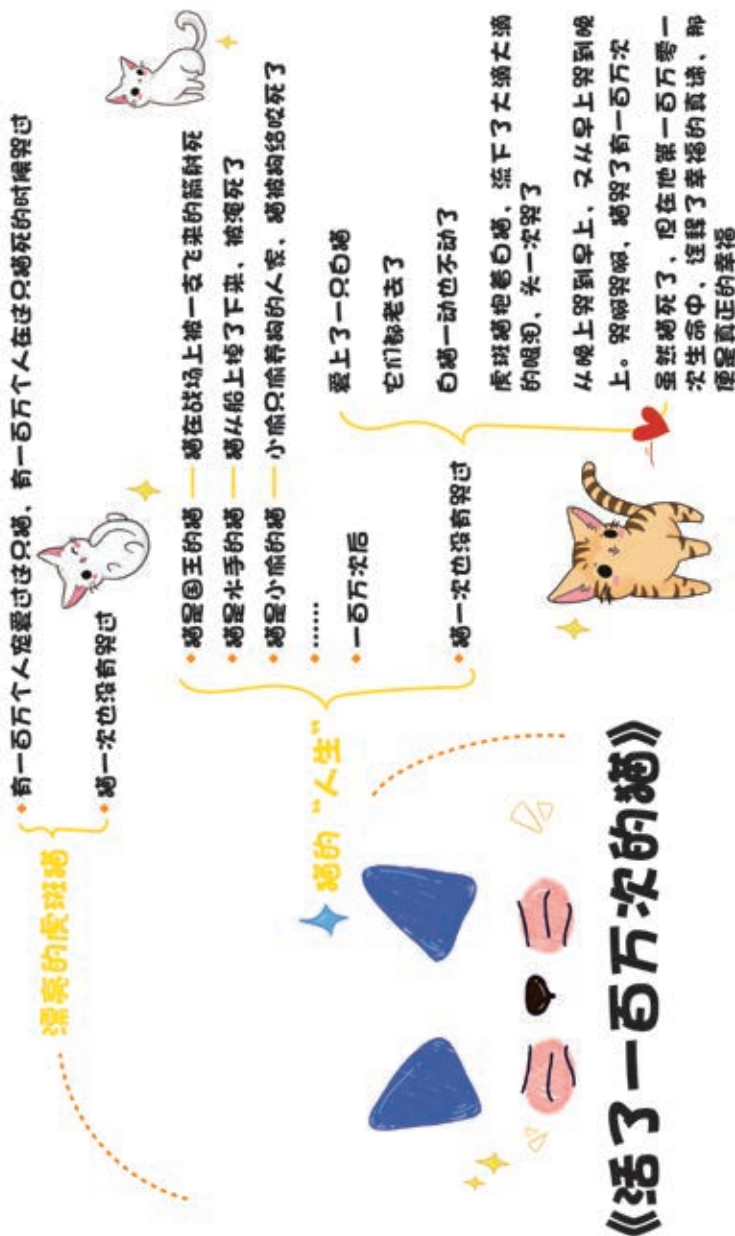 《活了一百万次的猫》
漂亮的虎斑猫
有一百万个人宠爱过这只猫，有一百万个人在这只猫死的时候哭过
猫一次也没有哭过
猫的“人生”
猫是国王的猫
猫在战场上被一支飞来的箭射死
猫是水手的猫
猫从船上掉了下来，被淹死了
猫是小偷的猫
小偷只偷养狗的人家，猫被狗给咬死了
……
一百万次后
猫一次也没有哭过
爱上了一只白猫
它们都老去了
白猫一动也不动了
虎斑猫抱着白猫，流下了大滴大滴
的眼泪，头一次哭了
从晚上哭到早上，又从早上哭到晚
上。哭啊哭啊，猫哭了有一百万次
虽然猫死了，但在他第一百万零一
次生命中，诠释了幸福的真谛，那
便是真正的幸福